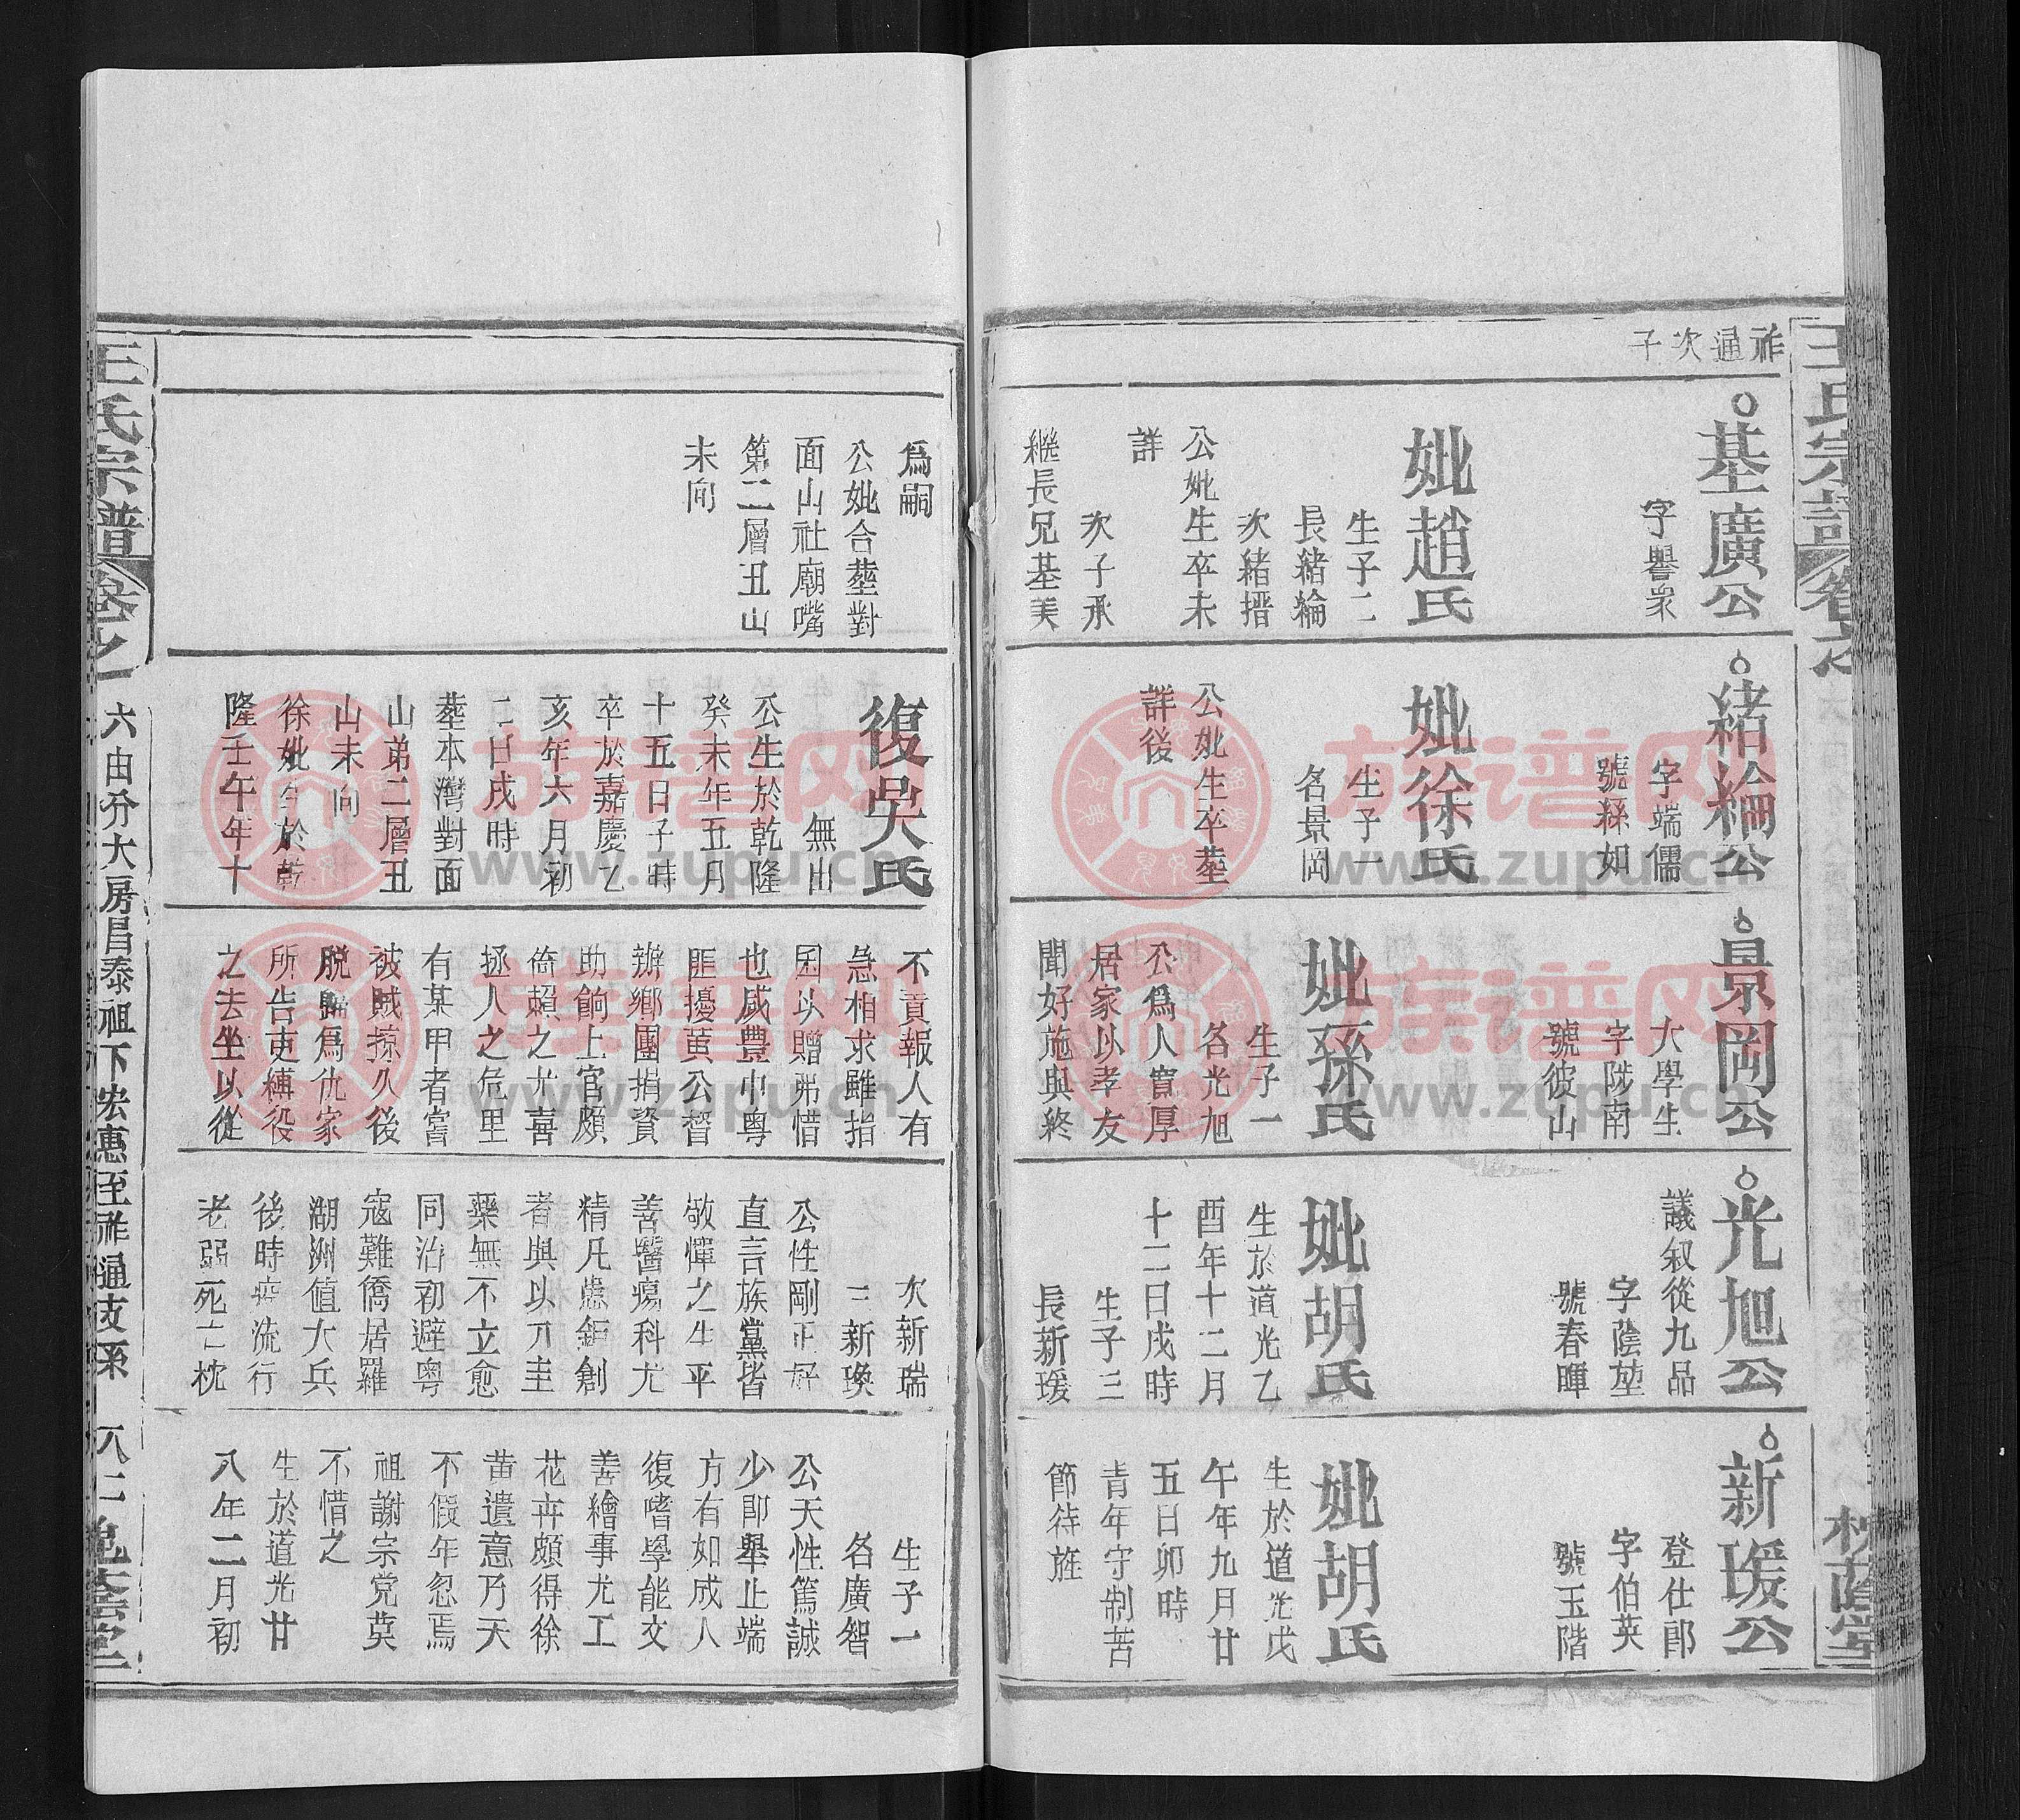 祚通次子
基廣公
字譽衆
妣趙氏
生子二
長緒綸
次緒搢
公妣生卒未
詳
次子承
繼長兄基美
緒綸公
字端儒
號絲如
妣徐氏
生子一
名景岡
公妣生卒塟
詳後
景岡公
大學生
字陟南
號彼山
妣孫氏
生子一
名光旭
公爲人寬厚
居家以孝友
聞好施與終
光旭公
議叙從九品
字蔭堃
號春暉
妣胡氏
生於道光乙
酉年十二月
十二日戌時
生子三
長新瑗
新瑗公
登仕郎
字伯英
號玉階
妣胡氏
生於道光戊
午年九月廿
五日卯時
青年守制苦
節待旌
爲嗣
公妣合塟對
面山社廟嘴
第二層丑山
未向
復吳氏
無出
公生於乾隆
癸未年五月
十五日子時
卒於嘉慶乙
亥年六月初
二日戌時
塟本灣對面
山弟二層丑
山未向
徐妣生於乾
隆壬午年十
不責報人有
急相求雖指
囷以贈弗惜
也咸豊中粤
匪擾黃公督
辦鄉團捐資
助餉上官頗
倚賴之尤喜
拯人之危里
有某甲者嘗
被賊掠久後
脱歸爲仇家
所告吏縛役
之去坐以從
次新瑞
三新瑍
公性剛正好
直言族黨皆
敬憚之生平
善醫瘍科尤
精凡患鉅創
者與以刀圭
藥無不立愈
同治初避粤
寇難僑居羅
湖洲值大兵
後時疫流行
老弱死亡枕
生子一
名廣智
公天性篤誠
少卽舉止端
方有如成人
復嗜學能文
善繪事尤工
花卉頗得徐
黃遺意乃天
不假年忽焉
祖謝宗党莫
不惜之
生於道光廿
八年二月初
王氏宗譜
六由分大房昌泰祖下宏惠至祚通支系
八二
族谱网
www.zupu.cn
族谱网
www.zupu.cn
族谱网
www.zupu.cn
族谱网
www.zupu.cn